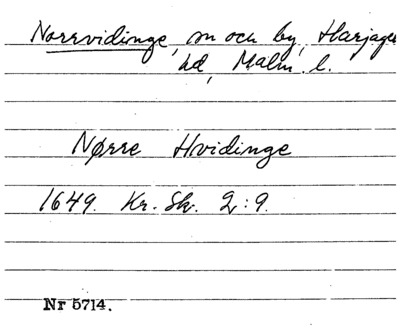 Norrvidinge, sn och by, Harjager
hd, Malm. l.
Nørre Hvidinge
1649. Kr. Sk. 2:9.
Nr 5714.